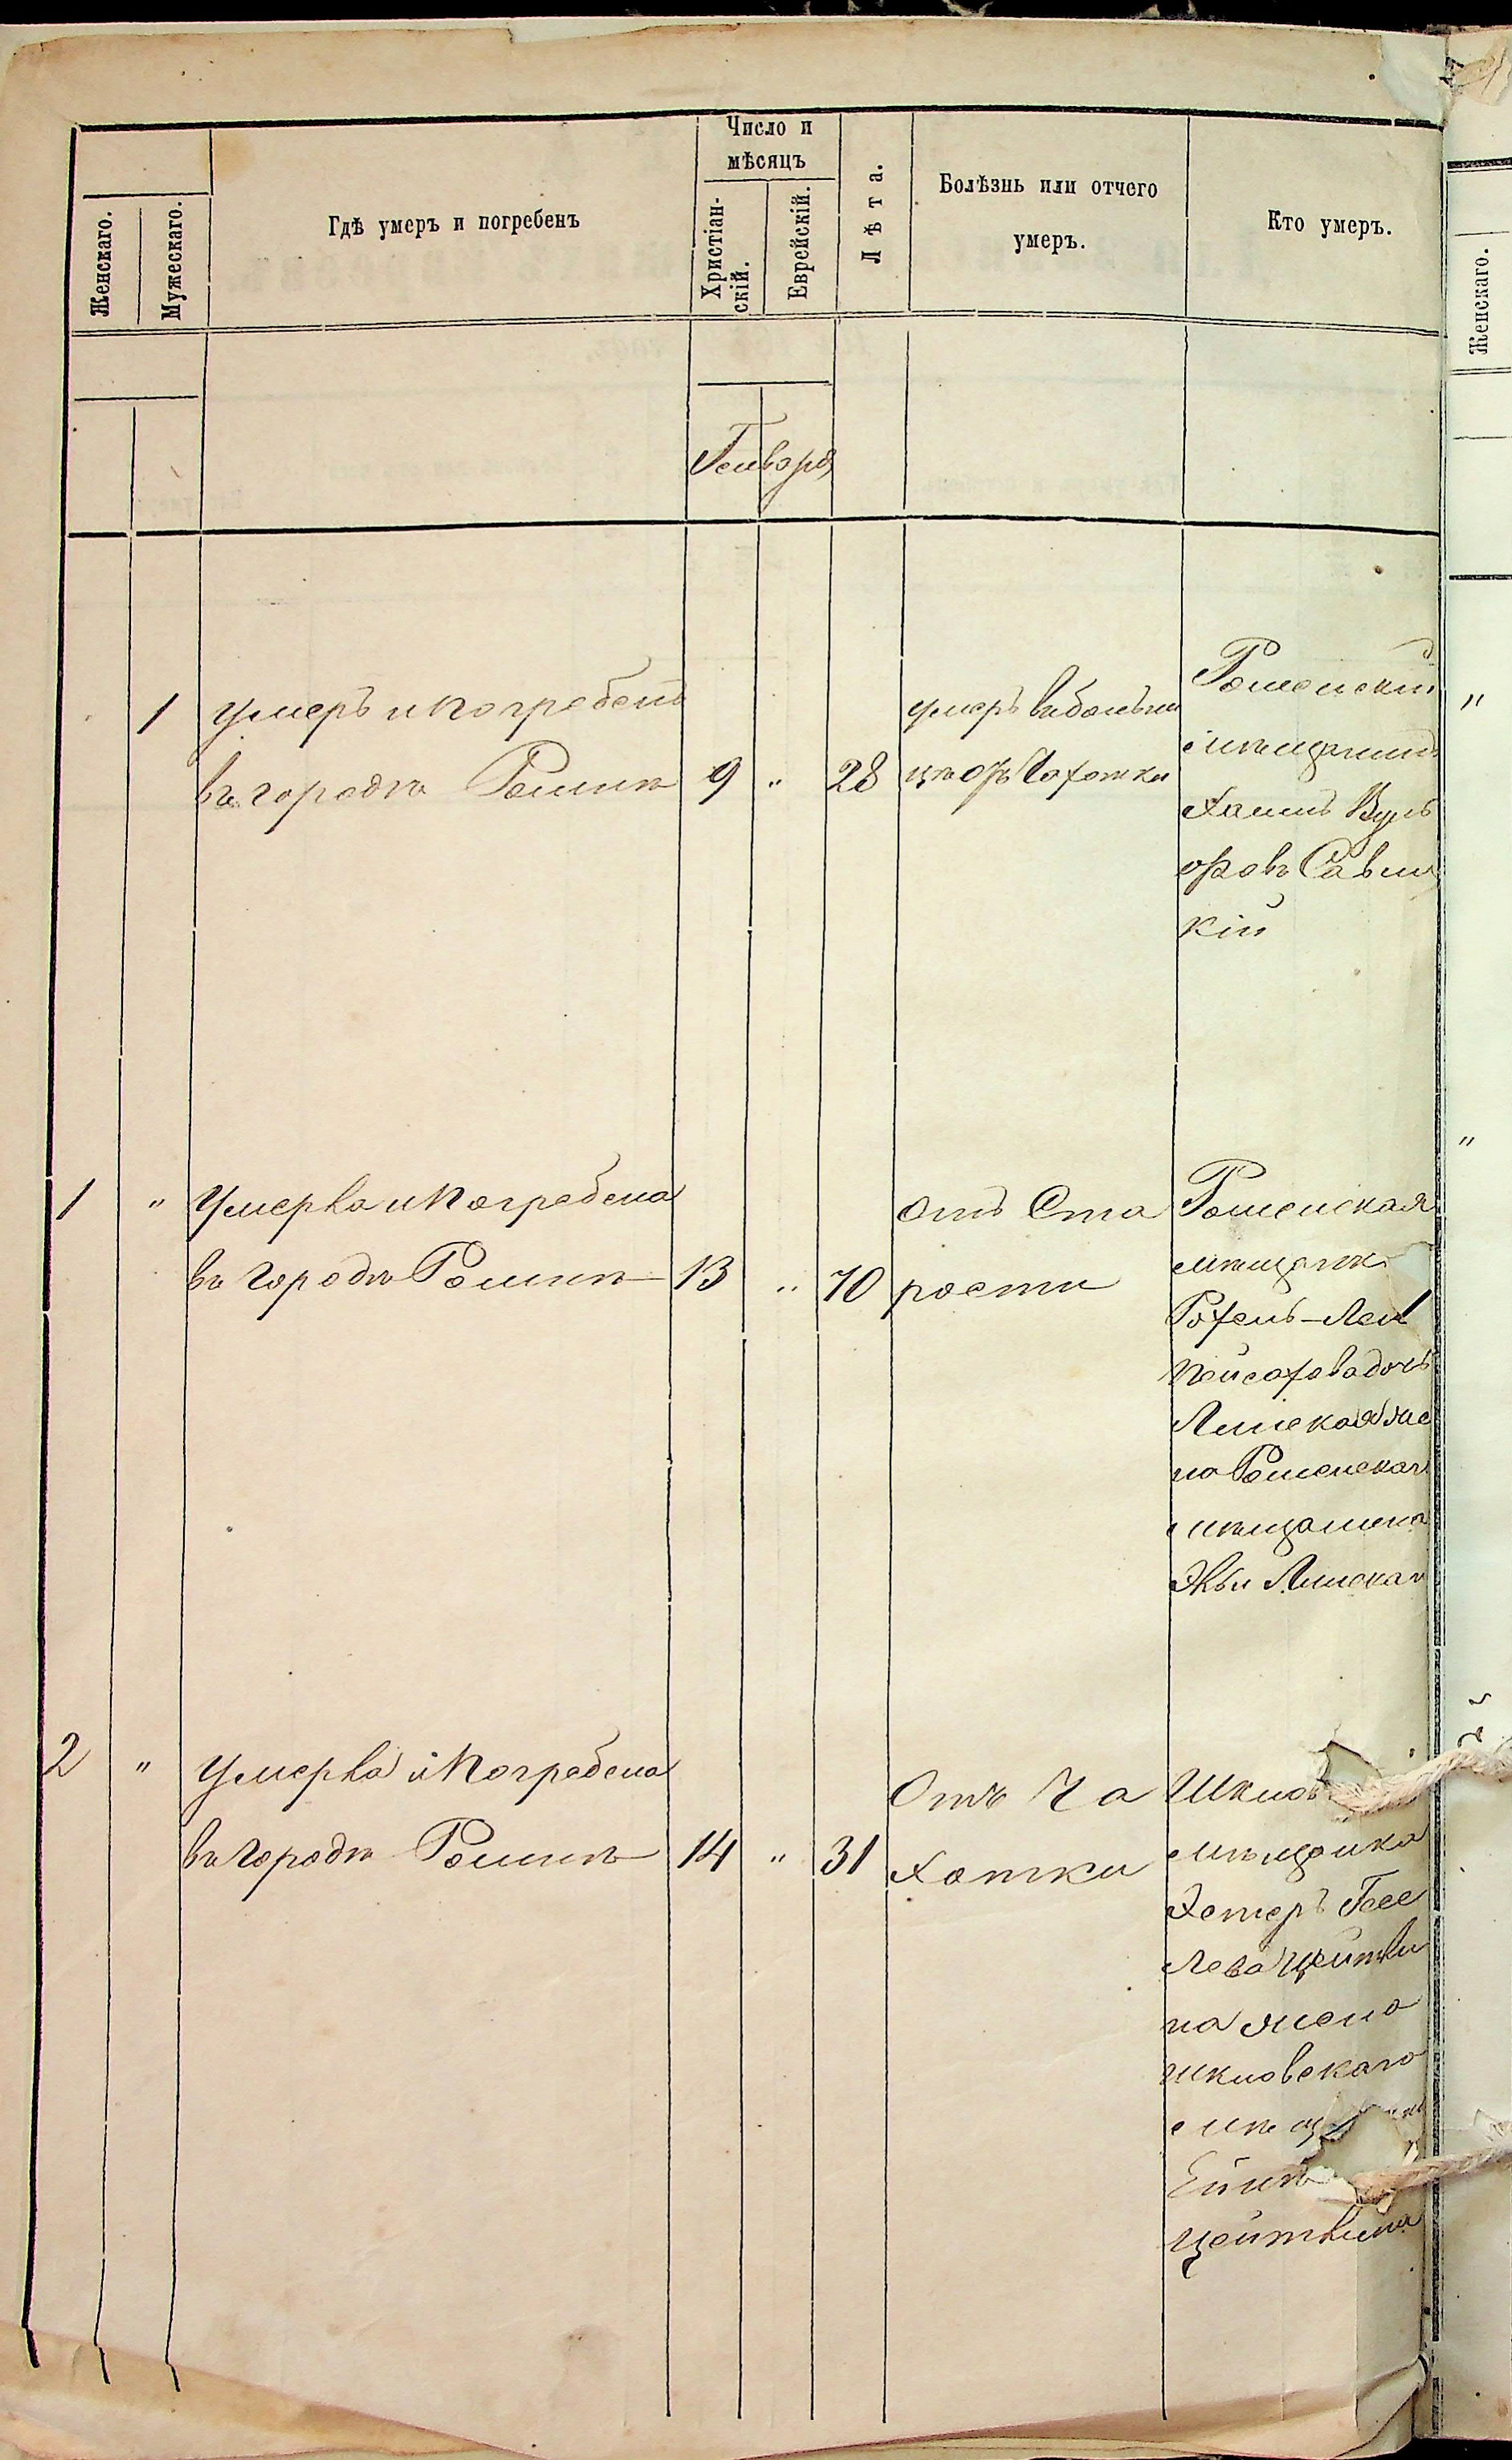 Число и
мѣсяцъ
Женскаго.
Мужескаго.
Гдѣ умеръ и погребенъ
Христіан-
скій.
Еврейскій.
Лѣта.
Болѣзнь или отчего
умеръ.
Кто умеръ.
Женскаго.
Генваря
1 Умеръ и погребенъ
въ городѣ Ромнѣ 9 " 28
умеръ въ больни
цѣ отъ Чахотки
Роменскій
мѣщанинъ
Хаимъ Вуль
фовъ Савиц
кій
1 " Умерла и погребена
въ городѣ Ромнѣ 13 " 70
отъ Ста
рости
Роменская
мѣщанк
Рохель-Лея
Пейсахова дочь
Линская же
на Роменскаго
мѣщанина
Линскаго
2 " Умерла и погребена
въ городѣ Ромнѣ 14 " 31
Отъ Ча
хотки
Шклов
мѣщанка
Эстеръ Гес
лева Цейтли
на жена
шкловскаго
мѣщ
Цейтлина
"
"